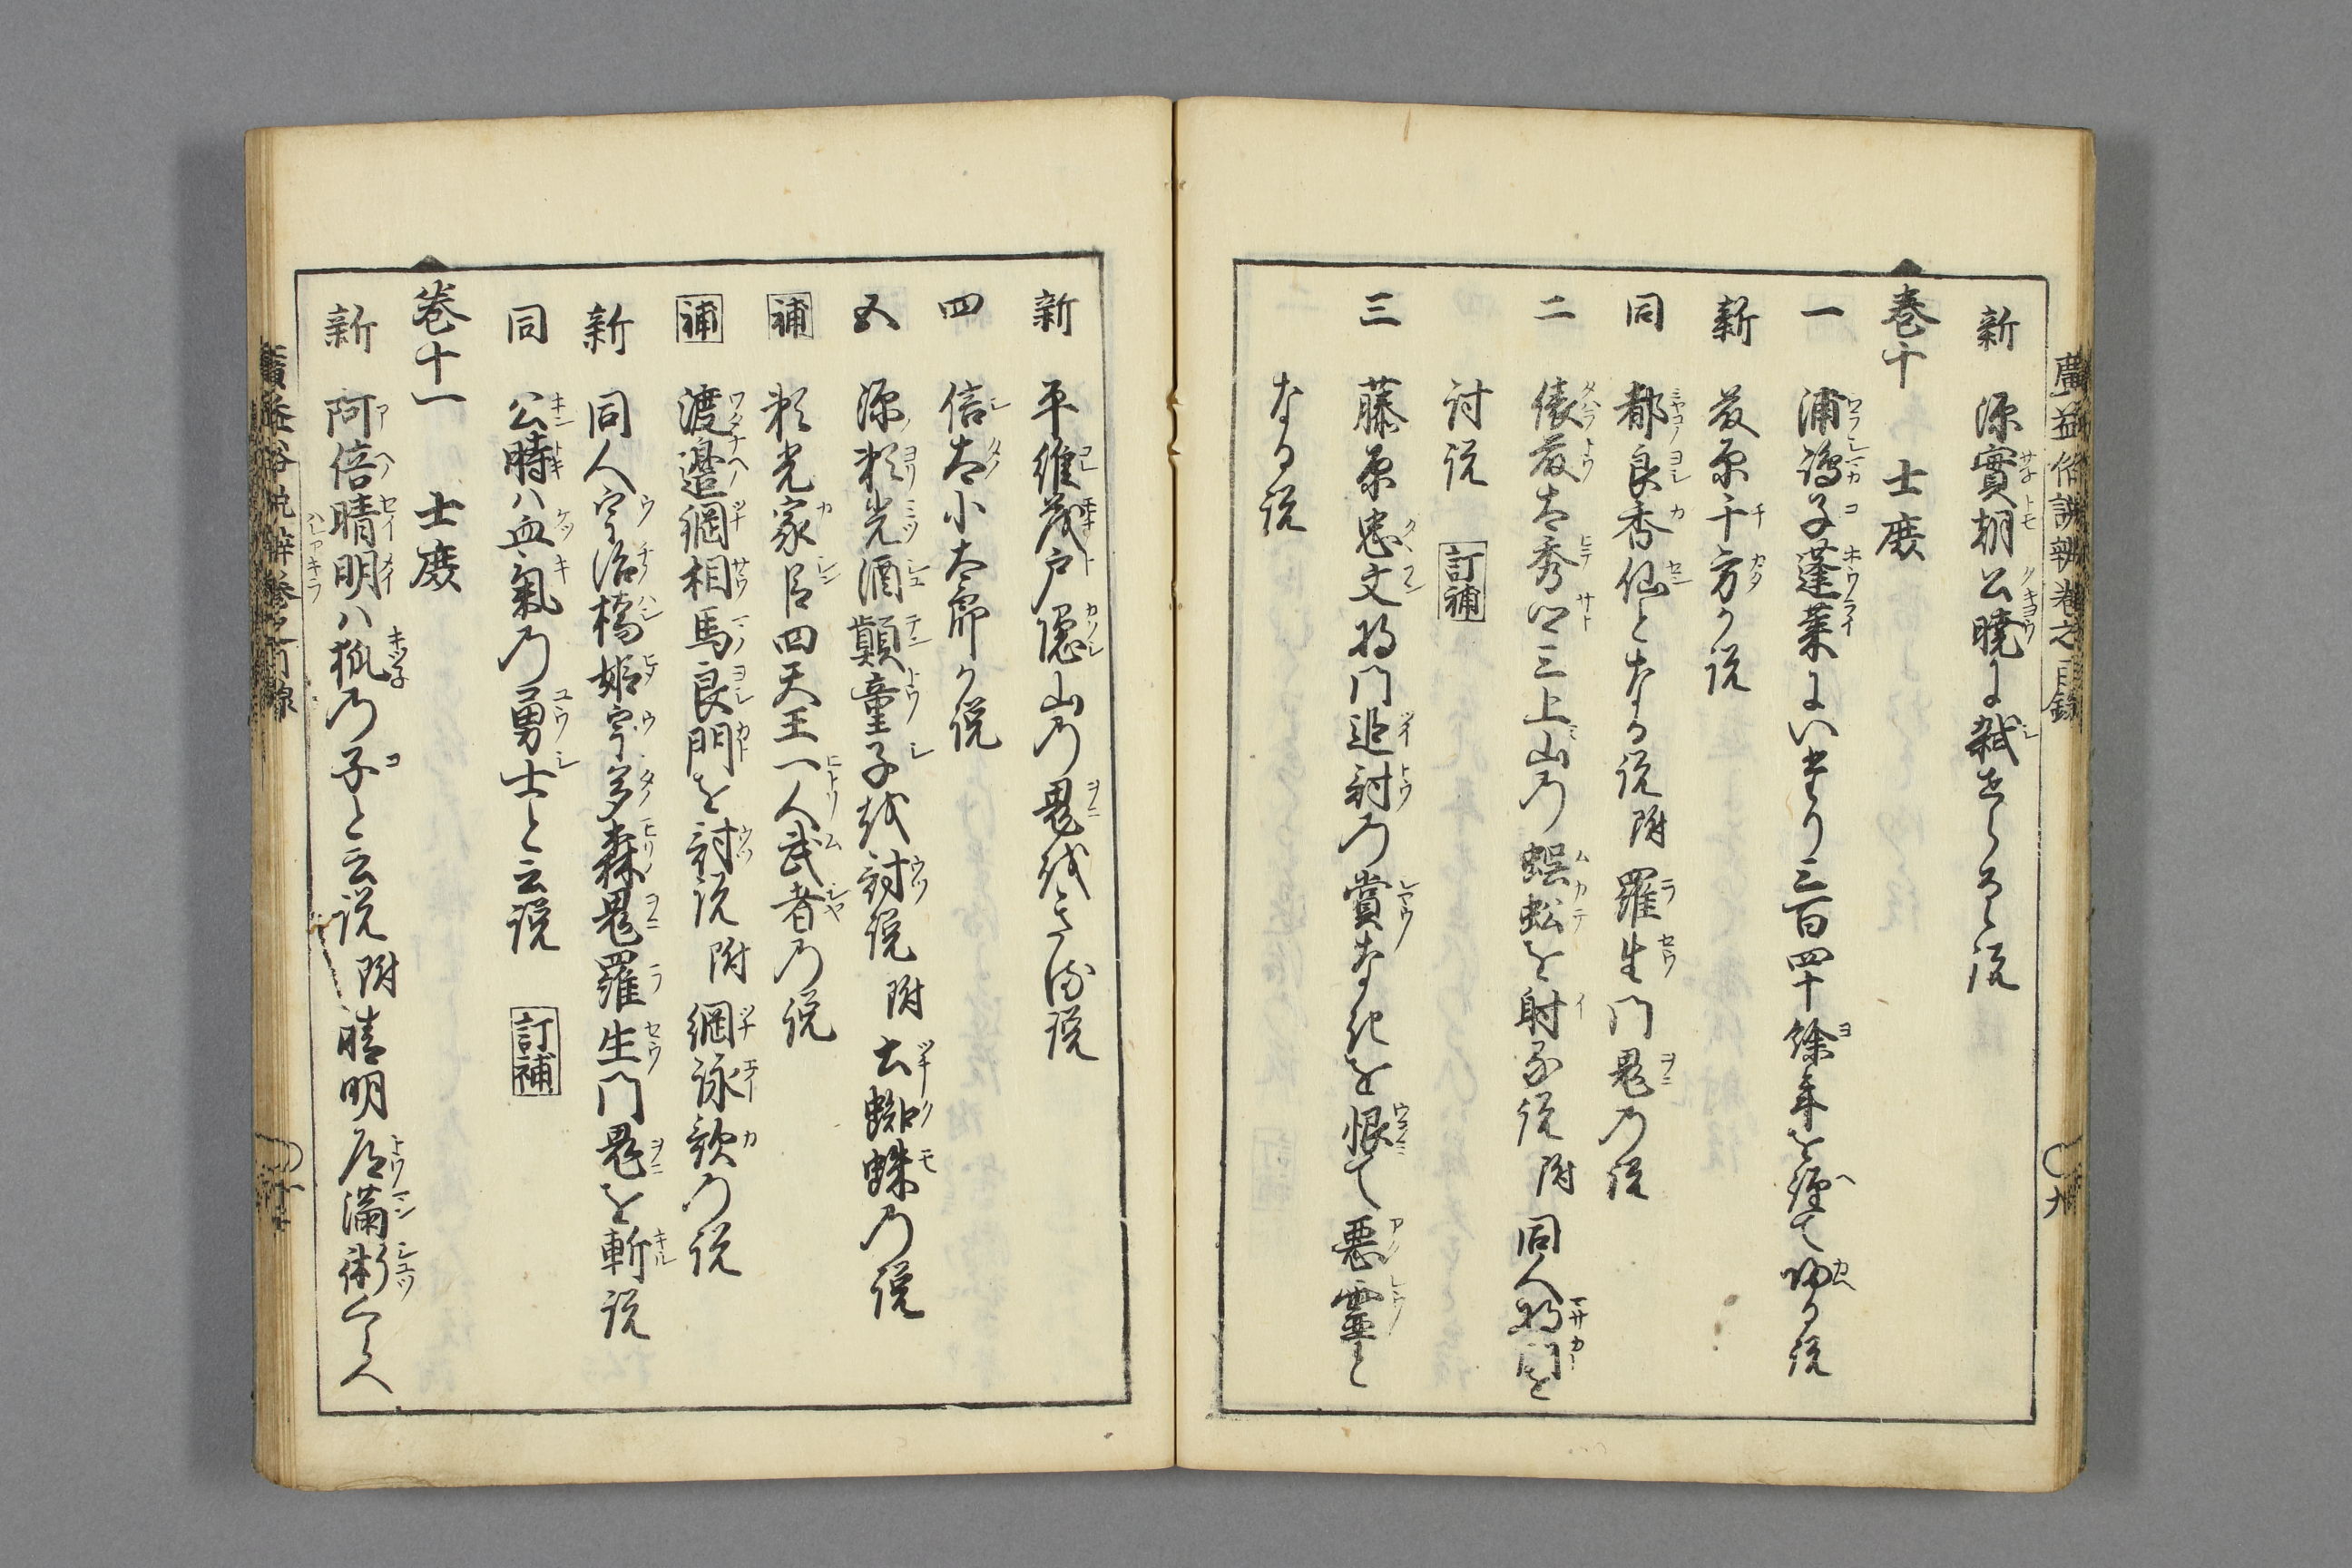 廣益俗説辨巻之目録　九
新　源實朝公曉に弑せらるゝ説
巻十　士庶
一　浦嶋子蓬莱にいたり三百四十餘年を經て帰る説
新　藤原千方が説
同　都良香仙となる説 附 羅生門鬼の説
二　俵藤太秀郷三上山乃蜈蚣を射る説 附 同人将門を
討説　訂補
三　藤原忠文将門追討の賞なきを恨て悪霊と
なる説
新　平維茂戸隠山乃鬼をころす説
四　信太小太郎が説
五　源頼光酒顛童子を討説 附 土蜘蛛乃説
補　頼光家臣四天王一人武者乃説
補　渡邉綱相馬良門を討説 附 綱詠歌の説
新　同人宇治橋姫宇多森鬼羅生門鬼を斬説
同　公時ハ血氣乃勇士と云説　訂補
巻十一　士庶
新　阿倍晴明ハ狐乃子と云説 附 晴明道満術くらへ